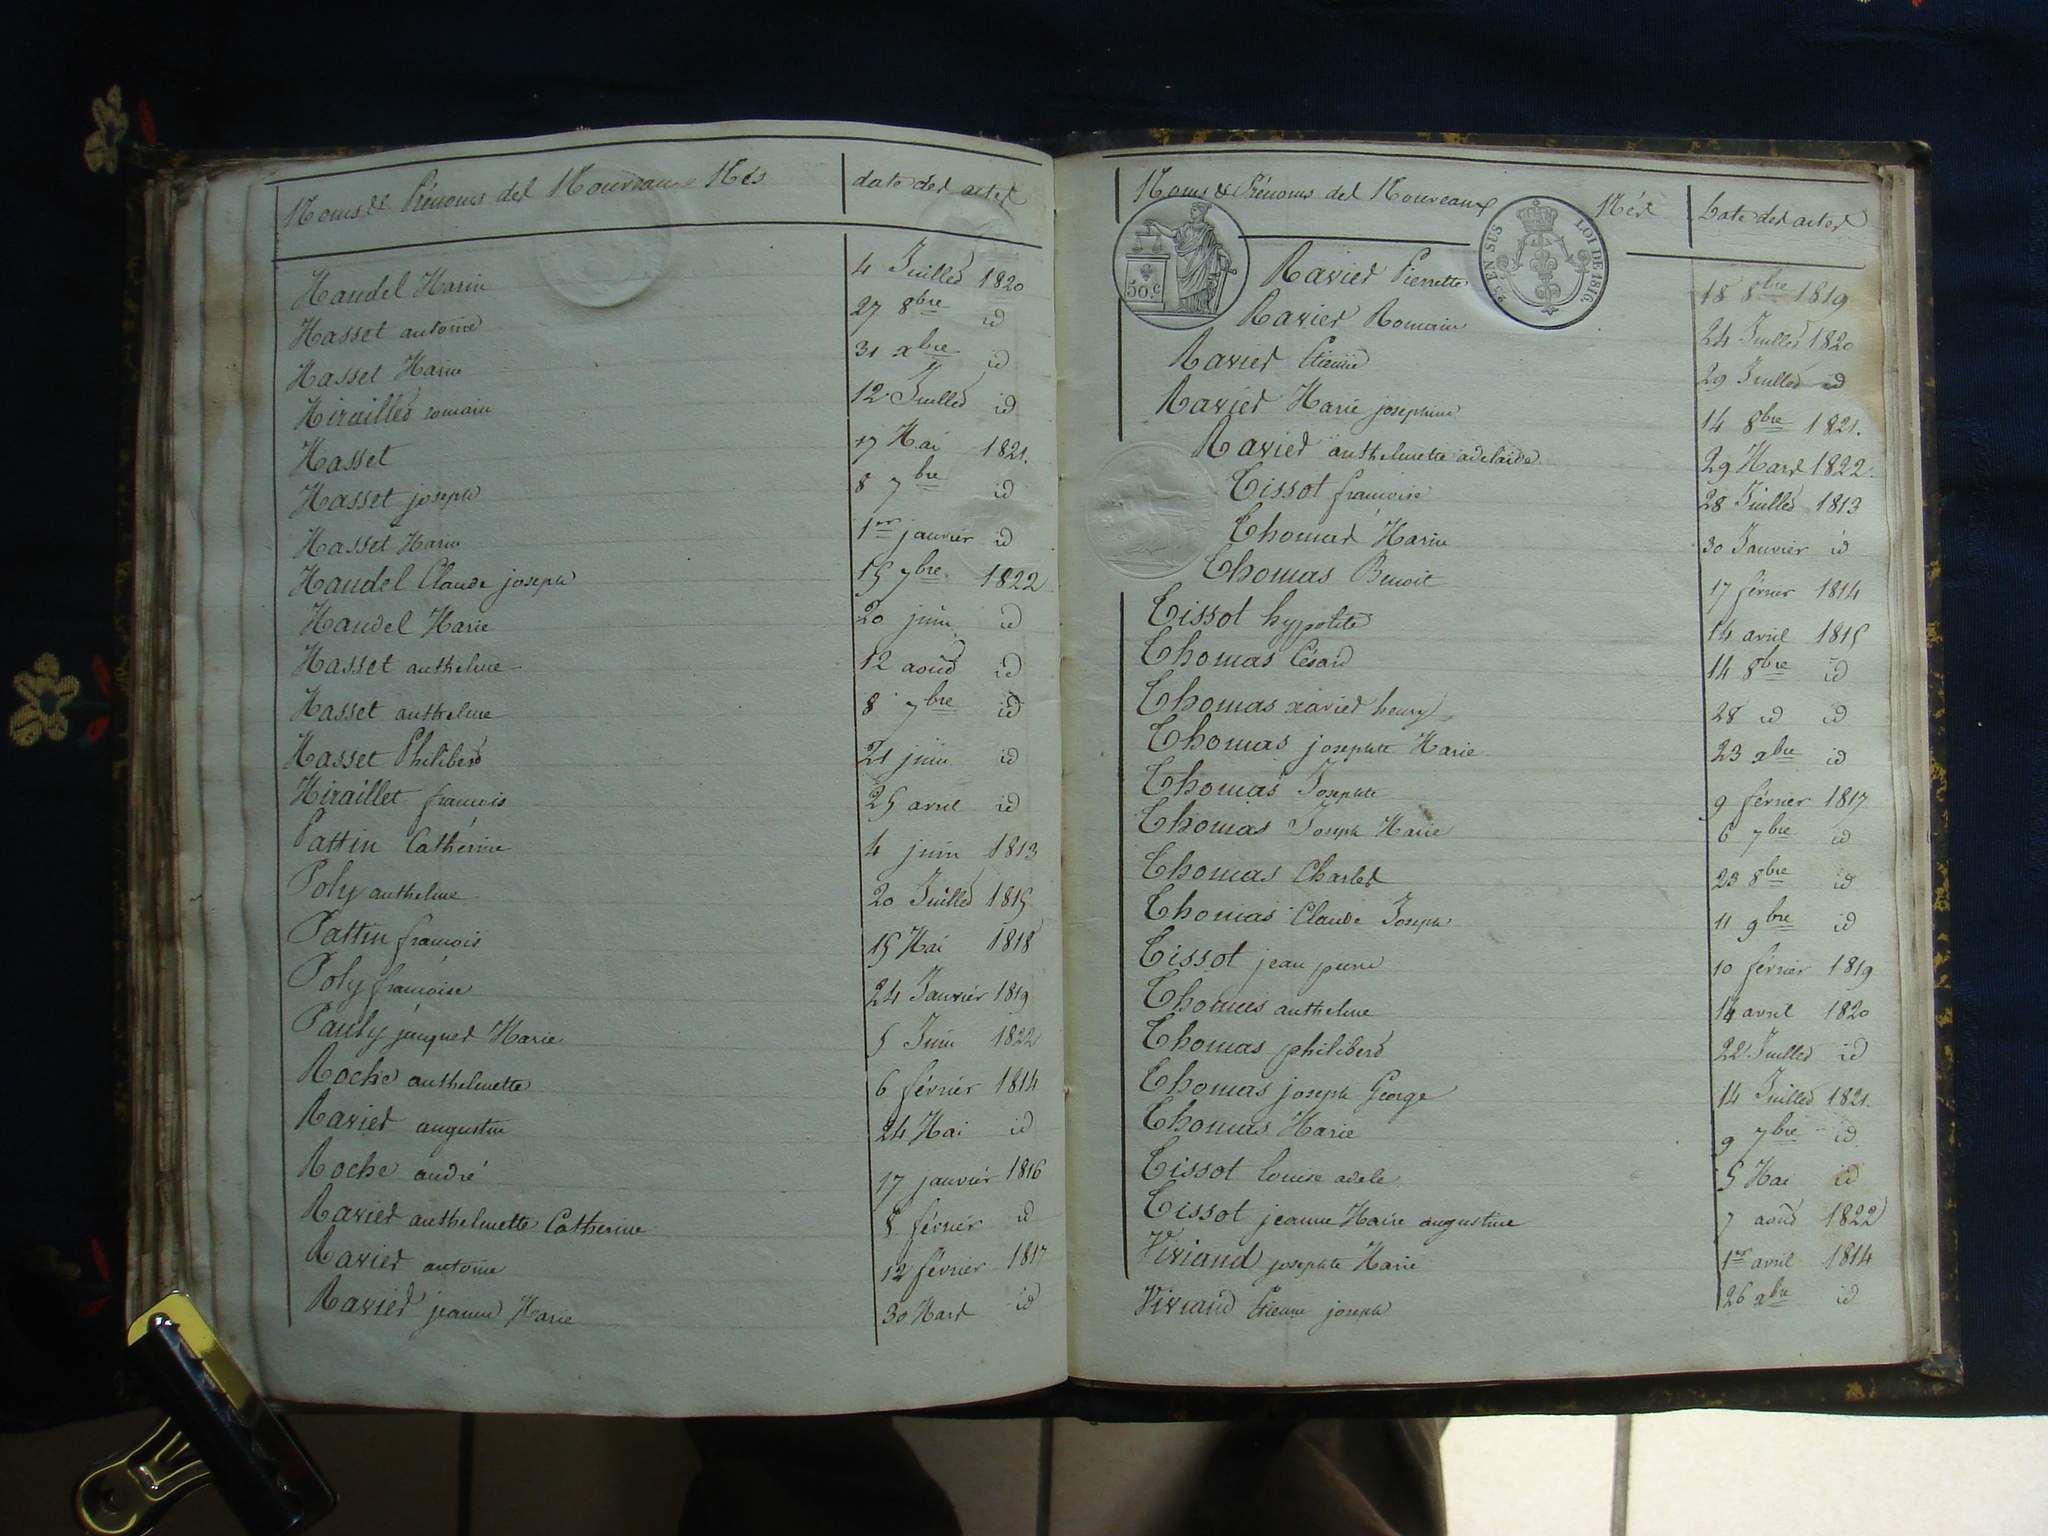 Noms & Prénoms des Nouveaux Nés date des actes
Mandel Marie 4 Juillet 1820
Masset antoine 27 8bre id
Masset Marie 31 xbre id
Miraillet romain 12 Juillet id
Masset 17 Mai 1821.
Masset joseph 8 7bre id
Masset Marie 1er janvier id
Mandel Claude joseph 15 7bre 1822
Mandel Marie 20 juin id
Masset anthelme 12 août id
Masset anthelme 8 7bre id
Masset Philibert 21 juin id
Miraillet francois 25 avril id
Pattin Cathérine 4 juin 1813
Poly anthelme 20 Juillet 1815
Pattin francois 15 Mai 1818
Poly francoise 24 Janvier 1819
Pauly jacques Marie 5 Juin 1822
Roche anthelmette 6 février 1814
Ravier augustin 24 Mai id
Roche andré 17 janvier 1816
Ravier anthelmette Catherine 8 février id
Ravier antoine 12 février 1817
Ravier jeanne Marie 30 Mars id
Noms & Prénoms des Nouveaux Nés Date des actes
50.c
25 EN SUS LOI DE 1816
Ravier Pierrette 18 8bre 1819
Ravier Romain 24 Juillet 1820
Ravier Etienne 29 Juillet id
Ravier Marie josephine 14 8bre 1821.
Ravier anthelmette adelaide 29 Mars 1822.
Tissot francoise 28 Juillet 1813
Thomas Marie 30 Janvier id
Thomas Benoit 17 février 1814
Tissot hyppolite 14 avril 1815
Thomas César 14 8bre id
Thomas xavier henry 28 id id
Thomas josephte Marie 23 xbre id
Thomas Josephte 9 février 1817
Thomas Joseph Marie 6 7bre id
Thomas Charles 23 8bre id
Thomas Claude Joseph 11 9bre id
Tissot jean pierre 10 février 1819
Thomas anthelme 14 avril 1820
Thomas philibert 22 Juillet id
Thomas joseph George 14 Juillet 1821.
Thomas Marie 9 7bre id
Tissot louise adele 5 Mai id
Tissot jeanne Marie augustine 7 août 1822
Viviand josephte Marie 1er avril 1814
Viviand Etienne joseph 26 xbre id